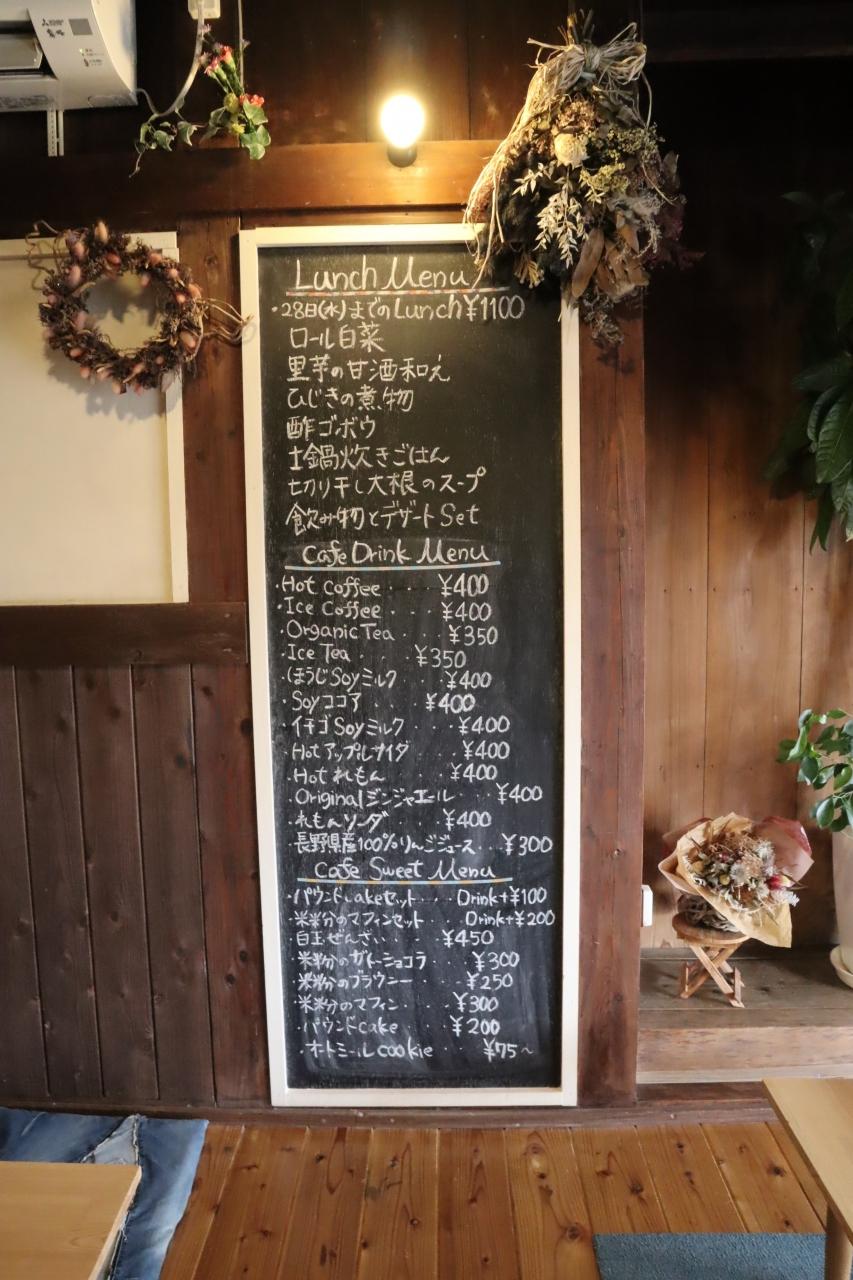 Lunch Menu
・28日(水)までのLunch¥1100
ロール白菜
里芋の甘酒和え
ひじきの煮物
酢ゴボウ
土鍋炊きごはん
切り干し大根のスープ
飲み物とデザートSet
Cafe Drink Menu
・Hot Coffee・・・¥400
・Ice Coffee・・・¥400
・Organic Tea・・・¥350
・Ice Tea・・・¥350
・ほうじSoyミルク・・・¥400
・Soyココア・・・¥400
・イチゴSoyミルク・・・¥400
・Hotアップルサイダ・・・¥400
・Hotれもん・・・¥400
・Originalジンジャエール・・・¥400
・れもんソーダ・・・¥400
・長野県産100%りんごジュース・・・¥300
Cafe Sweet Menu
・パウンドcakeセット・・・Drink+¥100
・米粉のマフィンセット・・・Drink+¥200
・白玉ぜんざい・・・¥450
・米粉のガトーショコラ・・・¥300
・米粉のブラウニー・・・¥250
・米粉のマフィン・・・¥300
・パウンドcake・・・¥200
・オートミールcookie・・・¥75~